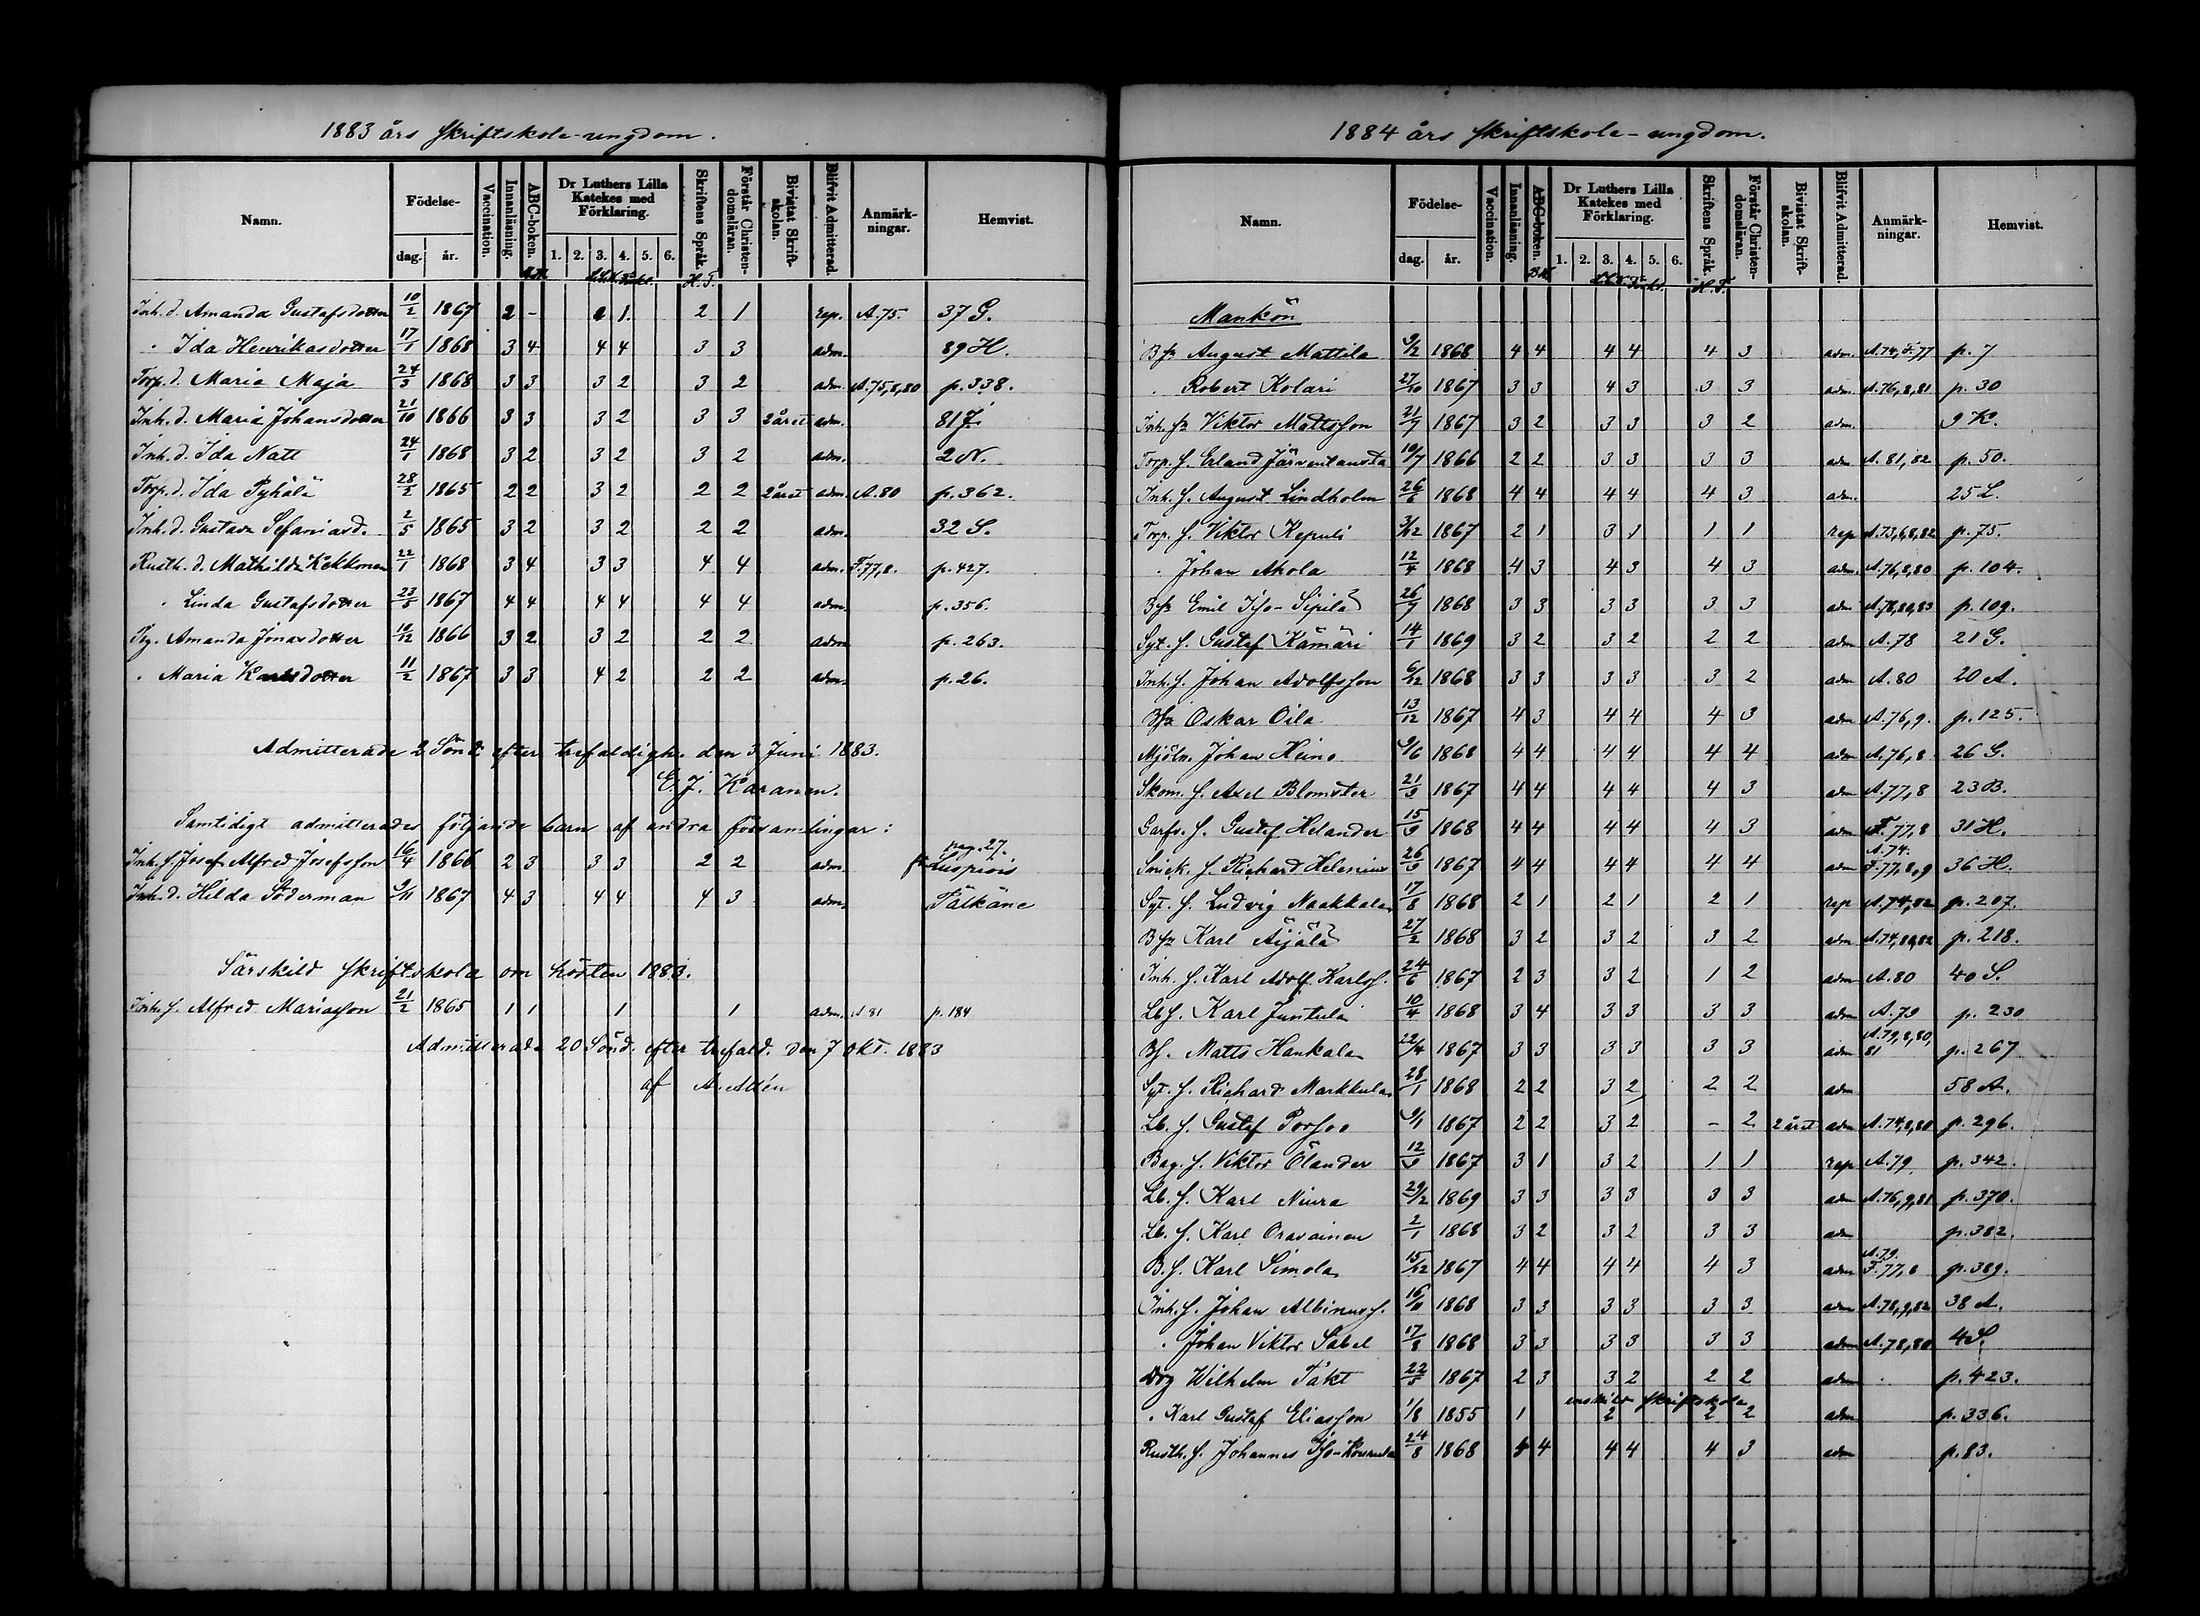 1883 års Skriftskole-ungdom.
Namn. Födelse- dag. år. Vaccination. Innanläsning. ABC-boken. Dr Luthers Lilla Katekes med Förklaring. 1. 2. 3. 4. 5. 6. Skriftens Språk. Förstår Christendomsläran. Bivistat Skriftskolan. Blifvit Admitterad. Anmärkningar. Hemvist.
H.T.
Inh. d. Amanda Gustafsdotter 10/2 1867 2 - 2 1. 2 1 rep. A.75. 37 G.
" Ida Henriksdotter 17/1 1868 3 4 4 4 3 3 adm. 89 H.
Torp. d. Maria Maja 24/3 1868 3 3 3 2 3 2 adm. A.75,8,80 p. 338.
Inh. d. Maria Johansdotter 21/10 1866 3 3 3 2 3 3 2 året adm. 81 J.
Inh. d. Ida Natt 24/1 1868 3 2 3 2 3 2 adm. 2 N.
Torp. d. Ida Pyhälä 28/2 1865 2 2 3 2 2 2 2 året adm. A.80 p. 362.
Inh. d. Gustava Sefaniasd. 2/5 1865 3 2 3 2 2 2 adm. 32 S.
Rusth. d. Mathilda Kekkonen 22/1 1868 3 4 3 3 4 4 adm. F.77,8. p. 427.
" Linda Gustafsdotter 23/5 1867 4 4 4 4 4 4 adm. p. 356.
Pig. Amanda Jonasdotter 10/12 1866 3 2 3 2 2 2 adm. p. 263.
" Maria Karlsdotter 11/2 1867 3 3 4 2 2 2 adm. p. 26.
Admitterade 2 Sönd. efter trefaldigh. den 3 Juni 1883.
K. J. Karanen.
Samtidigt admitterades följande barn af andra församlingar:
Inh. s. Josef Alfred Josefsson 16/4 1866 2 3 3 3 2 2 adm. pag. 27. fr. Luopiois
Inh. d. Hilda Söderman 9/11 1867 4 3 4 4 4 3 adm. Pälkäne
Särskild skriftskola om hösten 1883.
Inh. s. Alfred Mariasson 21/2 1865 1 1 1 1 adm. A 81 p. 184
Admitterade 20 Sönd. efter trefald. den 7 Okt. 1883
af A. Aldén
1884 års Skriftskole-ungdom.
Namn. Födelse- dag. år. Vaccination. Innanläsning. ABC-boken. Dr Luthers Lilla Katekes med Förklaring. 1. 2. 3. 4. 5. 6. Skriftens Språk. Förstår Christendomsläran. Bivistat Skriftskolan. Blifvit Admitterad. Anmärkningar. Hemvist.
H.T.
Mankön
Bs. August Mattila 9/2 1868 4 4 4 4 4 3 adm. A.74, F.77 p. 7
" Robert Kolari 27/10 1867 3 3 4 3 3 3 adm. A.76,8,81 p. 30
Inh. s. Viktor Mattsson 21/7 1867 3 2 3 3 3 2 adm. 9 K.
Torp. s. Erland Järventausta 10/7 1866 2 2 3 3 3 3 adm A. 81, 82 p. 50.
Inh. s. August Lindholm 26/6 1868 4 4 4 4 4 3 adm. 25 L.
Torp. s. Viktor Kepuli 3/12 1867 2 1 3 1 1 1 rep A.73,6,8,82 p. 75.
" Johan Ahola 12/4 1868 4 3 4 3 4 3 adm. A.76,8,80 p. 104.
Bs. Emil Iso-Sipilä 26/7 1868 3 3 3 3 3 3 adm A.78,80,83 p. 109.
Syt. s. Gustaf Kämäri 14/1 1869 3 2 3 2 2 2 adm A. 78 21 G.
Inh. s. Johan Adolfsson 6/12 1868 3 3 3 3 3 2 adm A. 80 20 A.
Bs. Oskar Oila 13/12 1867 4 3 4 4 4 3 adm A.76, 9. p. 125.
Mjöln. Johan Heino 9/6 1868 4 4 4 4 4 4 adm A.76, 8 26 G.
Skom. s. Axel Blomster 21/9 1867 4 4 4 4 4 3 adm A.77, 8 23 B.
Garfv. s. Gustaf Helander 15/9 1868 4 4 4 4 4 3 adm F.77, 8 31 H.
Snick. s. Richard Helenius 26/9 1867 4 4 4 4 4 4 adm A.74. F.77,8,9 36 H.
Syt. s. Ludvig Naakkala 17/8 1868 2 1 2 1 2 1 rep A.74,82 p. 207.
Bs. Karl Äijälä 27/2 1868 3 2 3 2 3 2 adm A.74,80,82 p. 218.
Inh. s. Karl Adolf Karlss. 24/6 1867 2 3 3 2 1 2 adm A. 80 40 S.
Lbs. Karl Juntula 10/4 1868 3 4 3 3 3 3 adm A. 79 p. 230
Bs. Matts Hankala 22/4 1867 3 3 3 3 3 3 adm A.79,8,80, 81 p. 267
Syt. s. Richard Markkula 28/1 1868 2 2 3 2 2 2 adm 58 A.
Lb. s. Gustaf Porsoo 9/1 1867 2 2 3 2 - 2 2 året adm A.74,8,80 p. 296.
Bag. s. Viktor Ölander 12/9 1867 3 1 3 2 1 1 rep A. 79 p. 342.
Lb. s. Karl Niura 29/12 1869 3 3 3 3 3 3 adm A.76,9,81 p. 370.
Lb. s. Karl Oravainen 2/1 1868 3 2 3 2 3 3 adm p. 382.
B. s. Karl Simola 15/12 1867 4 4 4 4 4 3 adm A.79. F.77,8 p. 389.
Inh. s. Johan Albinuss. 16/10 1868 3 3 3 3 3 3 adm A.78,9,82 38 A.
" Johan Viktor Sabel 17/8 1868 3 3 3 3 3 3 adm A.78,80 4 S.
Drg Wilhelm Takt 22/5 1867 2 3 3 2 2 2 adm p. 423.
enskild skriftskola
" Karl Gustaf Eliasson 1/8 1855 1 2 2 2 adm p. 336.
Rusth. s. Johannes Iso- 24/8 1868 4 4 4 4 4 3 adm p. 83.